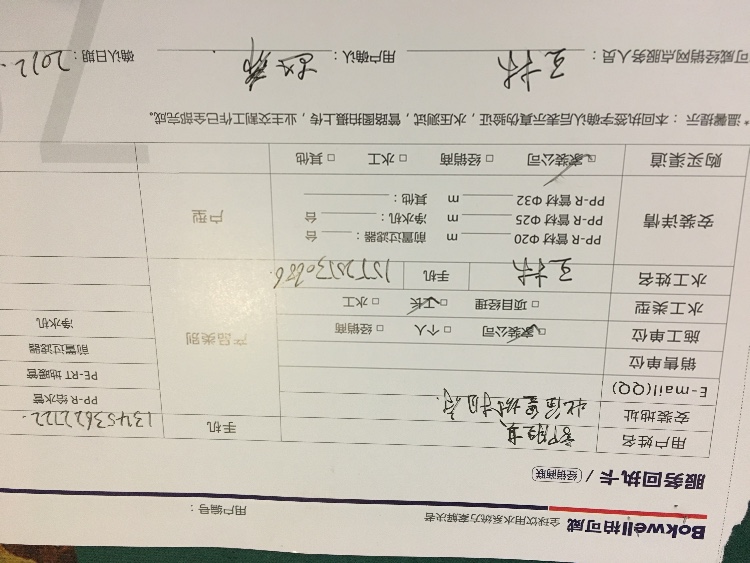 Bokwell柏可威 全球饮用水系统方案解决者 用户编号：
服务回执卡 / 经销商联
用户姓名 手机 13453622722
安装地址
E-mail(QQ)
销售单位
施工单位 家装公司 □ 个人 □ 经销商
水工类型 □ 项目经理 工长 □ 水工
水工姓名 王林 手机
安装详情
PP-R 管材 Φ20 m 前置过滤器： 台
PP-R 管材 Φ25 m 净水机： 台
PP-R 管材 Φ32 m 其他：
购买渠道 家装公司 □ 经销商 □ 水工 □ 其他
产品类别
PP-R 给水管
PE-RT 地暖管
前置过滤器
净水机
户型
*温馨提示：本回执签字确认后表示真伪验证，水压测试，管路图拍摄上传，业主交割工作已全部完成。
可威经销网点服务人员： 王林 用户确认： 确认日期： 2022.